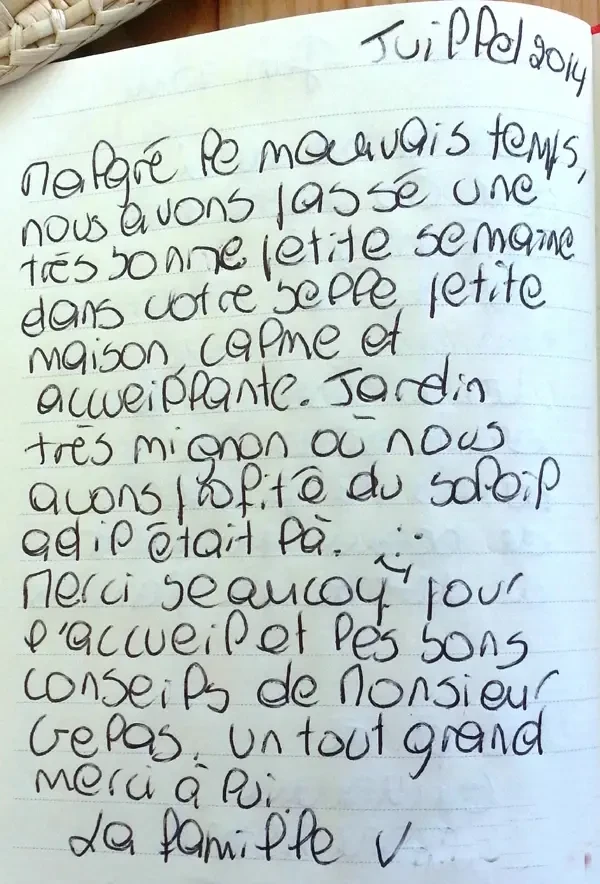 Juillet 2014
Malgré le mauvais temps,
nous avons passé une
très bonne petite semaine
dans votre belle petite
maison, calme et
accueillante. Jardin
très mignon où nous
avons profité du soleil
qd il était là. :-)
Merci beaucoup pour
l'accueil et les bons
conseils de Monsieur
Un tout grand
merci à lui.
La famille V